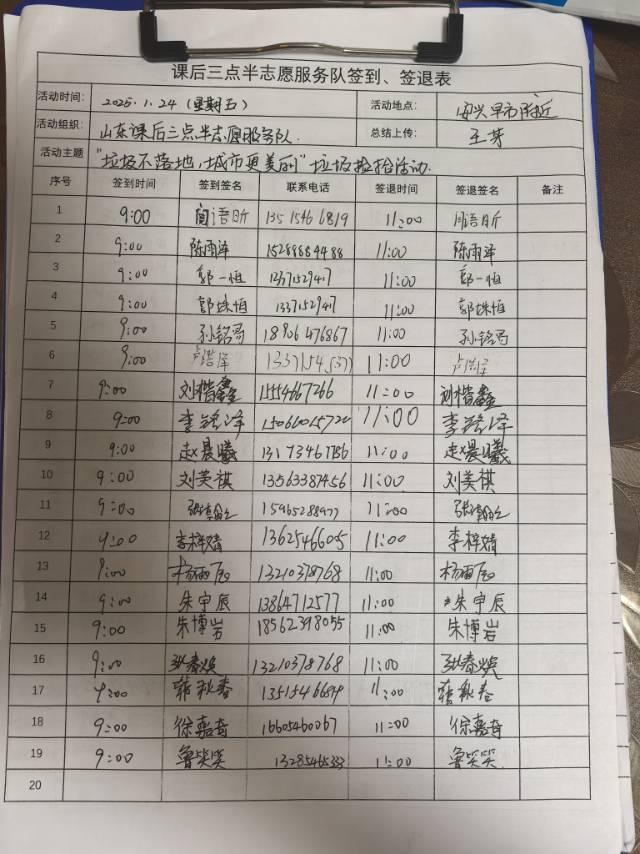 课后三点半志愿服务队签到、签退表
活动时间： 2025.1.24（星期五） 活动地点： 安兴早市附近
活动组织： 山东课后三点半志愿服务队. 总结上传： 王芽
活动主题 "垃圾不落地，城市更美丽"垃圾捡拾活动.
序号 签到时间 签到签名 联系电话 签退时间 签退签名 备注
1 9:00 11:00
2 9:00 陈雨泽 15288884488 11:00 陈雨泽
3 9:00 郭一恒 1337152947 11:00 郭一恒
4 9:00 郭姝恒 1337152947 11:00 郭姝恒
5 9:00 孙铭哥 18906476867 11:00 孙铭哥
6 9:00 卢浩泽 11:00 卢浩泽
7 9:00 刘楷鑫 15554667266 11:00 刘楷鑫
8 9:00 李铭泽 11:00 李铭泽
9 9:00 赵晨曦 11:00 赵晨曦
10 9:00 刘美祺 13563387456 11:00 刘美祺
11 9:00 15965288977 11:00
12 9:00 李梓婧 1362546605 11:00 李梓婧
13 9:00 13210378768 11:00
14 9:00 朱宇辰 13864712577 11:00 朱宇辰
15 9:00 朱博岩 18562398055 11:00 朱博岩
16 9:00 13210378768 11:00
17 9:00 韩秋春 11:00 韩秋春
18 9:00 徐嘉奇 16605460067 11:00 徐嘉奇
19 9:00 鲁笑笑 13285465333 11:00 鲁笑笑
20